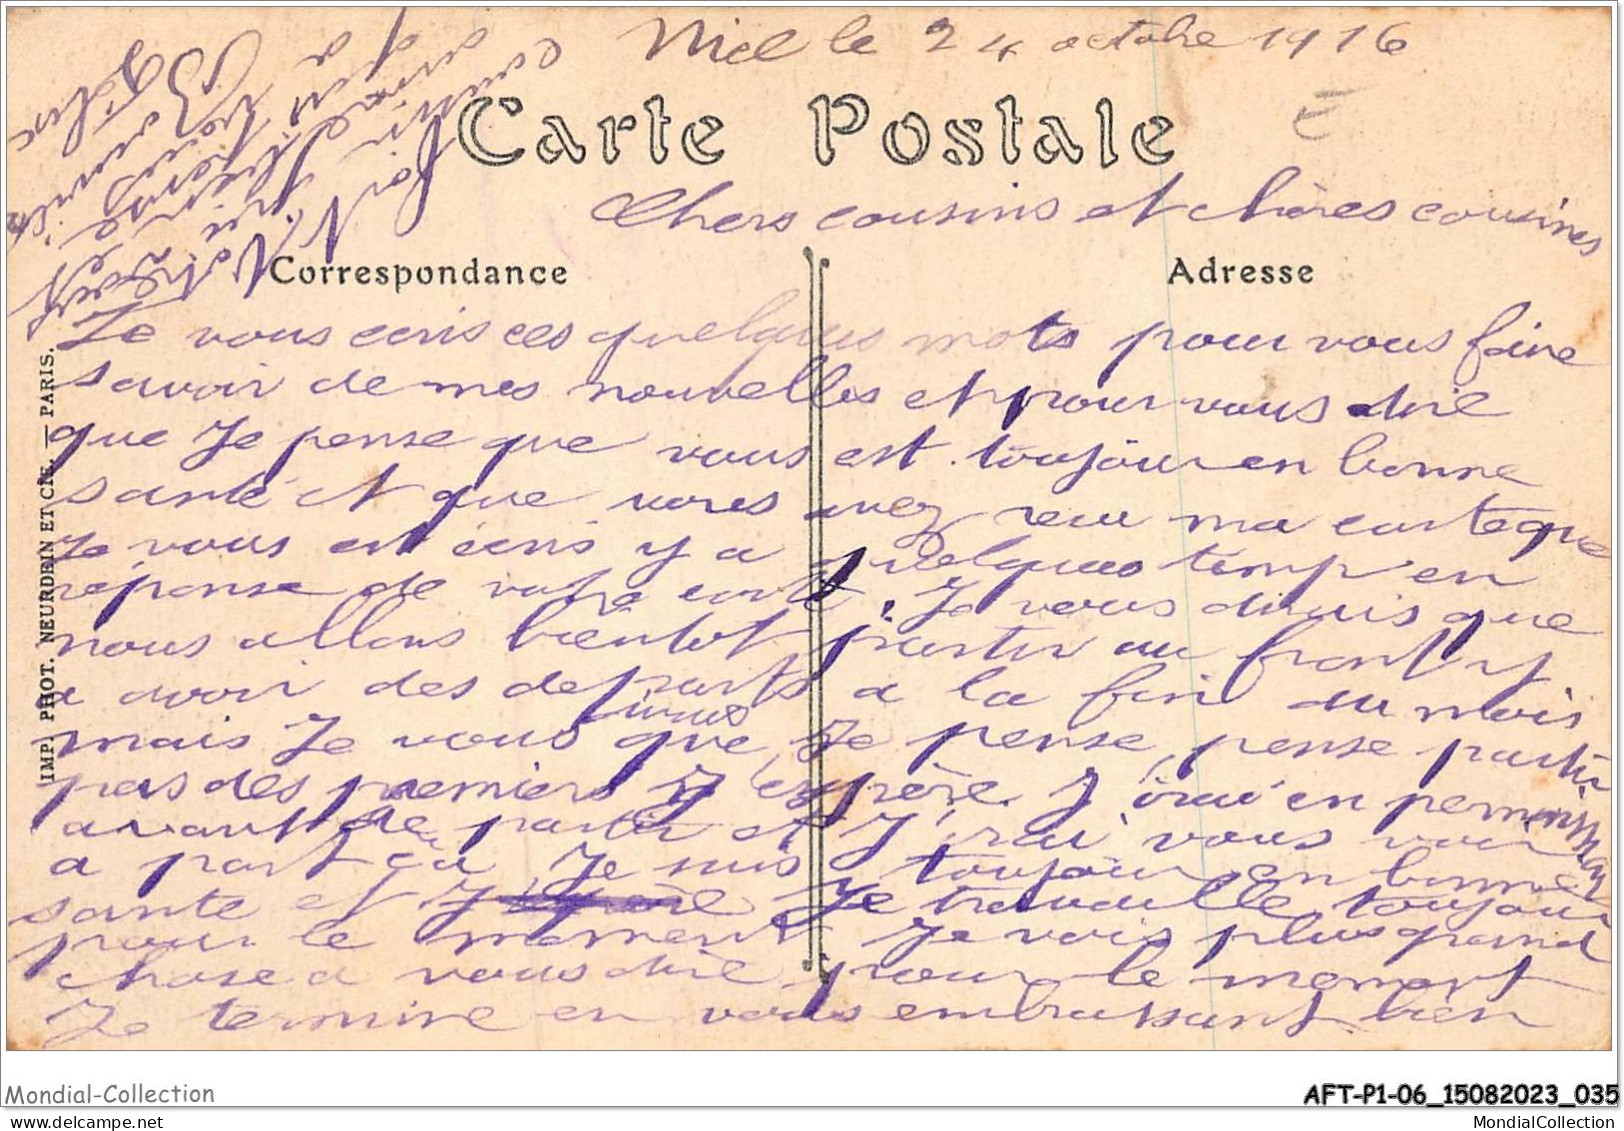 Niel le 24 octobre 1916
Carte Postale
Chers cousins et chères cousines
Correspondance
Adresse
Je vous ecris ces quelques mots pour vous faire
savoir de mes nouvelles et pour vous dire
que Je pense que vous est toujour en bonne
santé et que vous avez reçu ma carte que
Je vous est écris y a quelques temp en
réponse de votre carte. Je vous disais que
nous allons bientot partir au front y
a avoir des departs a la fin du mois
mais Je vous que Je pense, pense partir
pas des premiers J'espère. J'irai en permission
avant de partir et J'irai vous voir
a part ça Je suis toujour en bonne
sante et Je travaille toujour
pour le moment Je vois plus grand
chose a vous dire pour le moment
Je termine en vous embrassant bien
IMP. PHOT. NEURDEIN ET CIE. — PARIS.
Mondial-Collection
AFT-P1-06_15082023_035
mondial-collection.com
MondialCollection